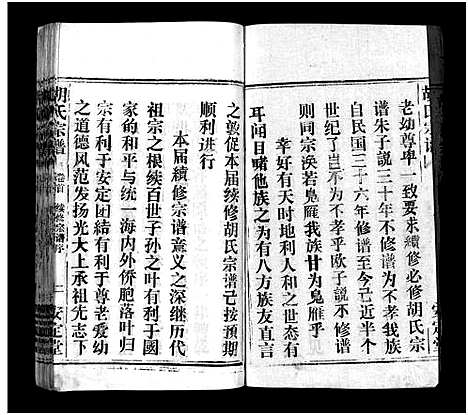 老幼尊卑一致要求續修必修胡氏宗
谱朱子說三十年不修谱為不孝我族
自民国三十六年修谱至今己近半个
世纪岂不為不孝乎欧子説不修谱
则同宗涣若鬼雁我族甘为鬼雁乎
幸好有天时地利人和之世态有
耳闻目睹他族之为有八方族友直言
安定堂
胡氏宗譜
卷首
续修宗谱序
一
安定堂
之敦促本届续修胡氏宗谱己按预期
顺利进行
本届續修宗谱意义之深继历代
祖宗之根续百世子孙之叶有利于國
家的和平与统一海内外侨胞落叶归
宗有利于安定团结有利于尊老爱幼
之道德风范发扬光大上承祖先志下